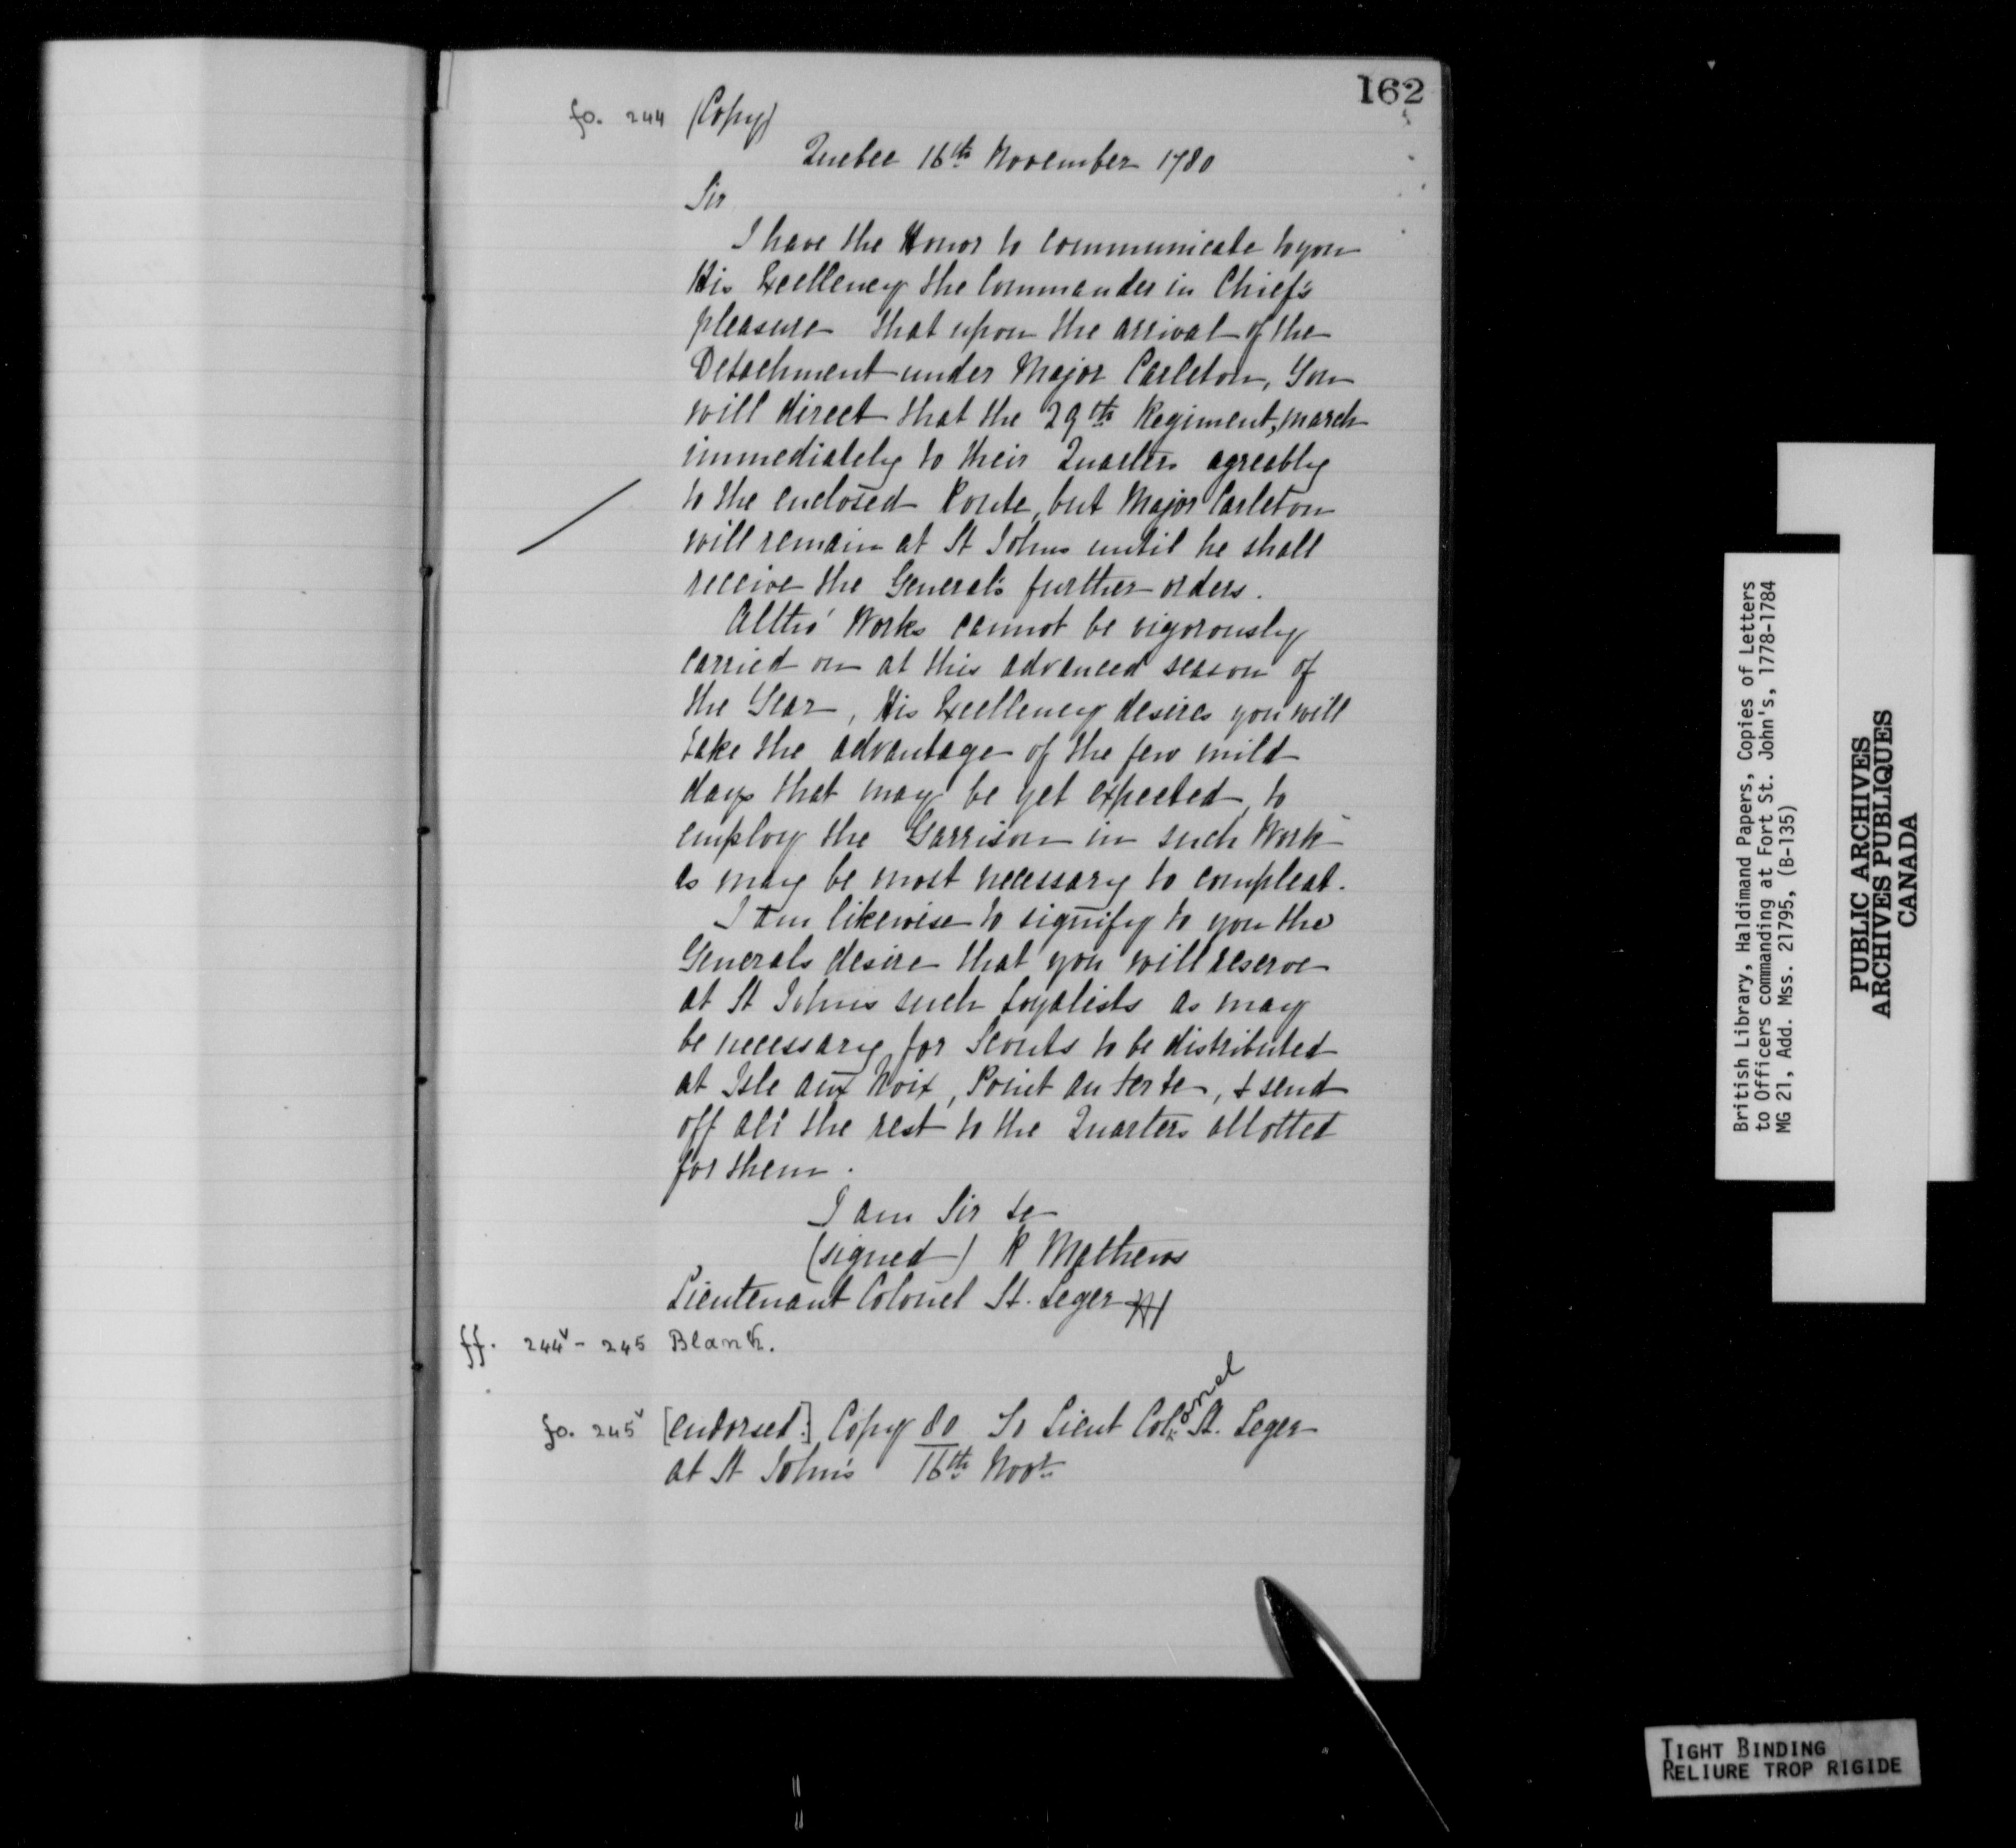 162
fo. 244 (Copy)
Quebec 16th November 1780
Sir
I have the Honor to communicate to you
His Excellency the Commander in Chief's
pleasure that upon the arrival of the
Detachment under Major Carleton, You
will direct that the 29th Regiment, march
immediately to their Quarters agreably
to the enclosed Route, but Major Carleton
will remain at St Johns until he shall
receive the General's further orders.
Altho' Works cannot be vigorously
carried on at this advanced season of
the Year, His Excellency desires you will
take the advantage of the few mild
days that may be yet expected, to
employ the Garrison in such Work
as may be most necessary to compleat.
I am likewise to signify to you the
Generals desire that you will reserve
at St Johns such Loyalists as may
be necessary for Scouts to be distributed
at Isle aux Noix, Point au fer &c, & send
off all the rest to the Quarters allotted
for them.
I am Sir &c
(signed) R Mathews
Lieutenant Colonel St. Leger
ff. 244v - 245 Blank.
fo. 245v [endorsed:] Copy 80 To Lieut Colonel St. Leger
at St John's 16th Novr
British Library, Haldimand Papers, Copies of Letters
to Officers commanding at Fort St. John's, 1778-1784
MG 21, Add. Mss. 21795, (B-135)
PUBLIC ARCHIVES
ARCHIVES PUBLIQUES
CANADA
TIGHT BINDING
RELIURE TROP RIGIDE